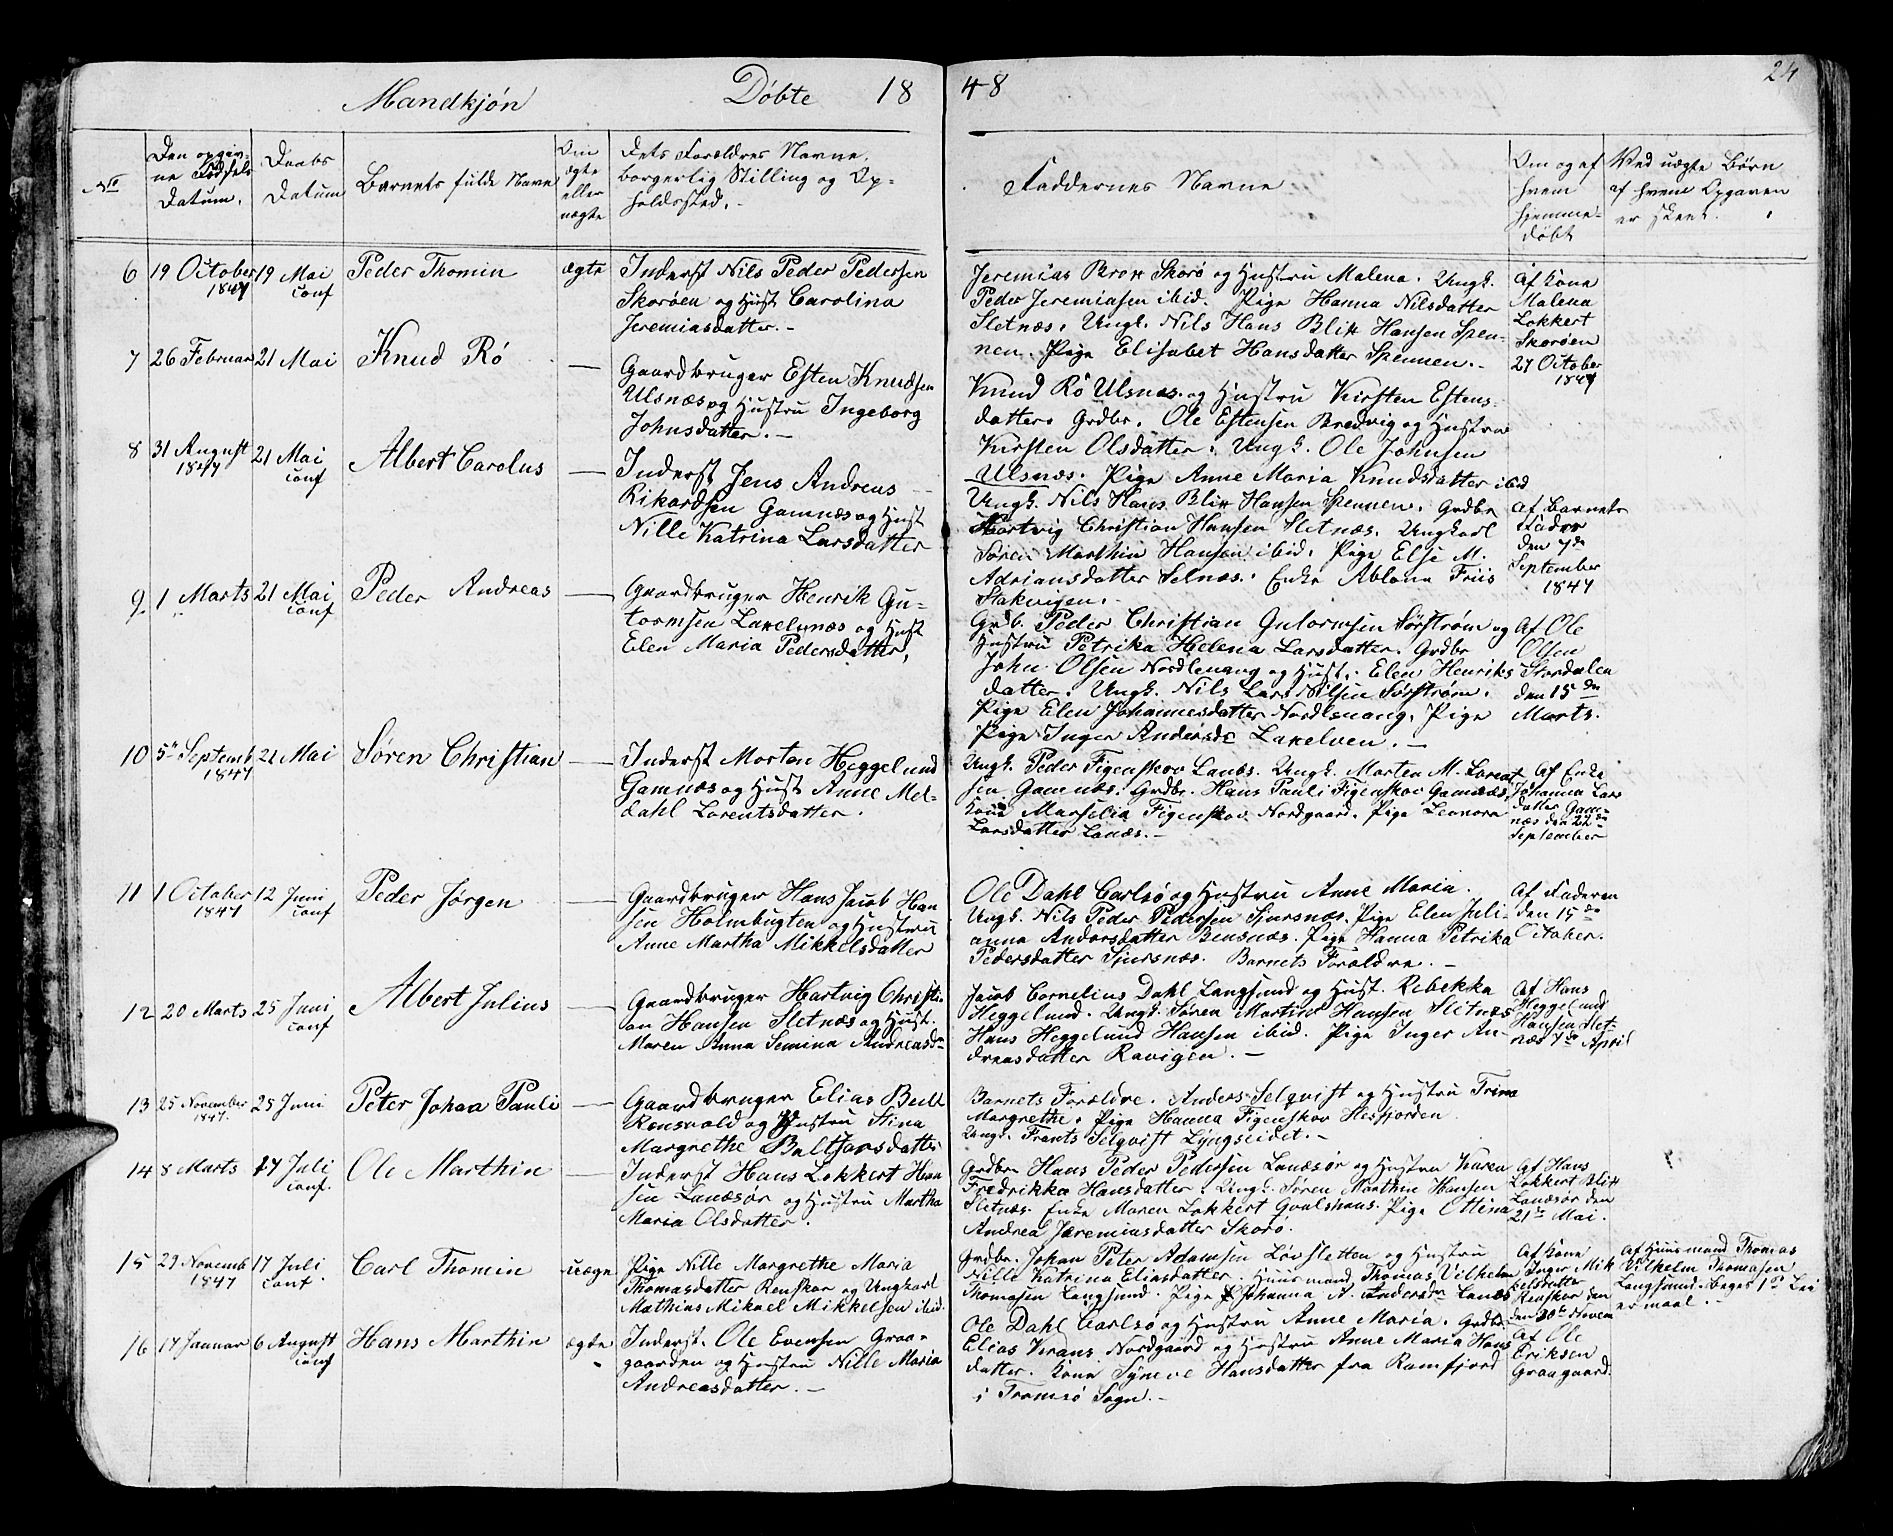 Mandkjøn Døbte 18
No
Den opgiv-
ne Fødsels
Datum.
Daabs
Datum
Barnets fulde Navne
Om
ægte
eller
uægte
Dets Forældres Navne,
borgerlig Stilling og Op-
holdssted.
6 19 October 19 Mai Peder Thomin ægte Inderst Nils Peder Pedersen
1847 conf Skorøen og Hust Carolina
Jeremiasdatter.-
7 26 Februar 21 Mai Knud Rö — Gaardbruger Esten Knudsen
Ulsnæs og Hustru Ingeborg
Johnsdatter.-
8 31 August 21 Mai Albert Carolus — Inderst Jens Andreas
1847 conf Rikardsen Gamnæs og Hust
Nille Katrina Larsdatter
9. 1 Marts 21 Mai Peder Andreas — Gaardbruger Henrik Gu-
conf tormsen Lakselvnæs og Hust
Elen Maria Pedersdatter,
10 5te Septemb 21 Mai Søren Christian — Inderst Morten Heggelund
1847 Gamnæs og Hust Anne Mel-
dahl Lorentsdatter.
11 1 October 12 Juni Peder Jørgen — Gaardbruger Hans Jacob Han
1847 conf sen Holmbugten og Hustru
Anne Martha Mikkelsdatter
12 20 Marts 25 Juni Albert Julius — Gaardbruger Hartvig Christi-
conf an Hansen Sletnæs og Hust.
Maren Anna Semina Andreasdr
13 25 November 25 Juni Peter Johan Pauli — Gaardbruger Elias Bull
1847. Rensvold og Hustru Stina
Margrethe Baltsarsdatter
14 8 Marts 17 Juli Ole Marthin — Inderst Hans Lokkert Han
conf. sen Lanæsør og Hustru Martha
Maria Olsdatter.
15 29 Novemb 17 Juli Carl Thomin uægte Pige Nille Margrethe Maria
1847 conf. Thomasdatter Renskar og Ungkarl
Mathias Mikael Mikkelsen ibid.
16 17 Januar 6 August Hans Marthin ægte Inderst Ole Evensen Graa-
conf gaarden og Hustru Nille Maria
Andreasdatter.-
48 24
Faddernes Navne
Om og af
hvem
hjemme-
døbt
Ved uægte Børn
af hvem Opgaven
er skeet.
Jeremias Brox Skorø og Hustru Malena. Ungk.
Peder Jeremiasen ibid. Pige Hanna Nilsdatter
Sletnæs. Ungk. Nils Hans Blix Hansen Spen-
nen. Pige Elisabet Hansdatter Spennen.-
Af Kone
Malena
Lokkert
Skorøen
27 October
1847
Knud Rö Ulsnæs og Hustru Kirsten Estens-
datter. Grdbr. Ole Estensen Bredvig og Hustru
Kirsten Olsdatter. Ungk. Ole Johnsen
Ulsnæs. Pige Anne Maria Knudsdatter ibid
Ungk. Nils Hans Blix Hansen Spennen. Grdbr
Hartvig Christian Hansen Sletnæs. Ungkarl
Søren Marthin Hansen ibid. Pige Else M.
Adriansdatter Selnæs. Enke Ablona Friis
Stakvigen.
Af Barnets
Fader
den 7de
September
1847
Grdb. Peder Christian Gutormsen Sørstrøm og
Hustru Petrika Helena Larsdatter. Grdbr
John Olsen Nordlenang og Hust. Elen Henriks
datter. Ungk. Nils Lars Nilsen Sørstrøm.
Pige Elen Johannesdatter Nordlenang. Pige
Pige Inger Andersdr Lakselven.-
Af Ole
Olsen
Stordalen
den 15de
Marts.
Ungk. Peder Figenskov Lanæs. Ungk. Morten M. Lorent
sen Gamnæs. Grdbr. Hans Pauli Figenskov Gamnæs.
Kone Marselia Figenskov Nordgaard. Pige Leonora
Larsdatter Lanæs.-
Af Enke
Johanna Lars
datter Gam-
næs den 22de
September
Ole Dahl Carlsø og Hustru Anne Maria.
Ungk. Nils Peder Pedersen Sjursnæs. Pige Elen Juli-
anna Andersdatter Bensnæs. Pige Hanna Petrika
Pedersdatter Sjursnæs. Barnets Forældre.-
Af Faderen
den 15de
October.
Jacob Cornelius Dahl Langsund og Hust. Rebekka
Heggelund. Ungk. Søren Martin Hansen Sletnæs
Hans Heggelund Hansen ibid. Pige Inger An-
dreasdatter Ravigen.-
Af Hans
Heggelund
Hansen Slet-
næs 7de April
Barnets Forældre. Anders Selqvist og Hustru Trine
Margrethe. Pige Hanna Figenskov Hesfjorden.
Ungk. Frants Selqvist Lyngseidet.-
Grdbr Hans Peder Pedersen Lanæsør og Hustru Karen
Fredrikka Hansdatter. Ungk. Søren Marthin Hansen
Sletnæs. Enke Maren Lokkert Gaalshaus. Pige Ottina
Andrea Jeremiasdatter Skorø.
Af Hans
Lokkert Blix
Lanæsør den
21de Mai.
Grdbr. Johan Peter Adamsen Løvsletten og Hustru
Nille Katrina Eliasdatter. Huusmand Thomas Vilhelm
Thomasen Langsund. Pige Johanna A. Andersdr Lanæs
Af Kone
Inger Mik
kelsdatter
Renskar den
den 30te Novem
Af Huusmand Thomas
Vilhelm Thomasen
Langsund. Beges 1ste Lei
ermaal.-
Ole Dahl Carlsø og Hustru Anne Maria. Grdbr
Elias Kraus Nordgaard og Hustru Anne Maria Hans
datter. Kone Synøve Hansdatter fra Ramfjord
i Tromsø Sogn.-
Af Ole
Eriksen
Graagaard.